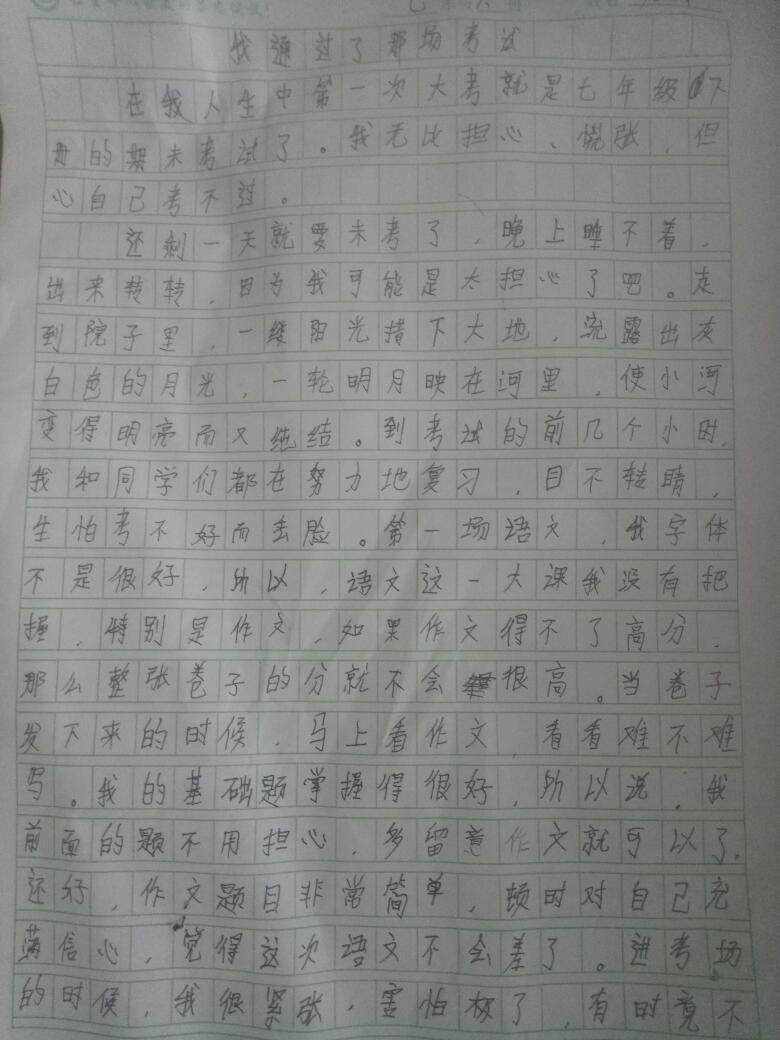 我通过了那场考试
在我人生中第一次大考就是七年级下
册的期末考试了。我无比担心、慌张，但
心自己考不过。
还剩一天就要末考了，晚上睡不着，
出来转转，因为我可能是太担心了吧。走
到院子里，一缕阳光揹下大地，流露出灰
白色的月光，一轮明月映在河里，使小河
变得明亮而又纯结。到考试的前几个小时，
我和同学们都在努力地复习，目不转睛，
生怕考不好而去脸。第一场语文，我字体
不是很好，所以，语文这一大课我没有把
握，特别是作文，如果作文得不了高分，
那么整张卷子的分就不会很高。当卷子
发下来的时候，马上看作文，看看难不难
写。我的基础题掌握得很好，所以说，我
前面的题不用担心，多留意作文就可以了，
还好，作文题目非常简单，顿时对自己充
满信心，觉得这次语文不会差了。进考场
的时候，我很紧张，害怕极了，有时竟不